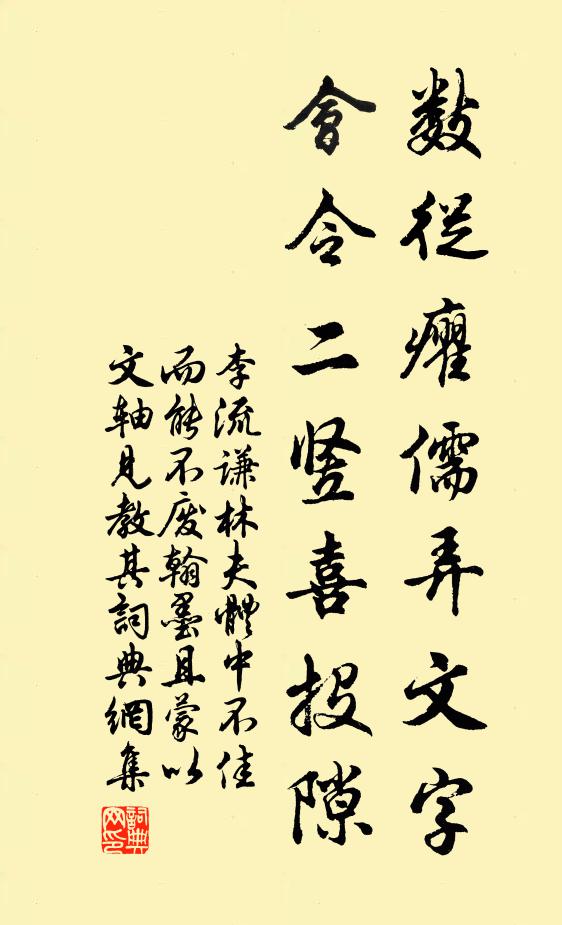 数従癯儒弄文字
會令二竖喜投隙
李流谦林夫體中不佳
而能不废翰墨且蒙以
文轴见教其詞典網集
詞典
网印